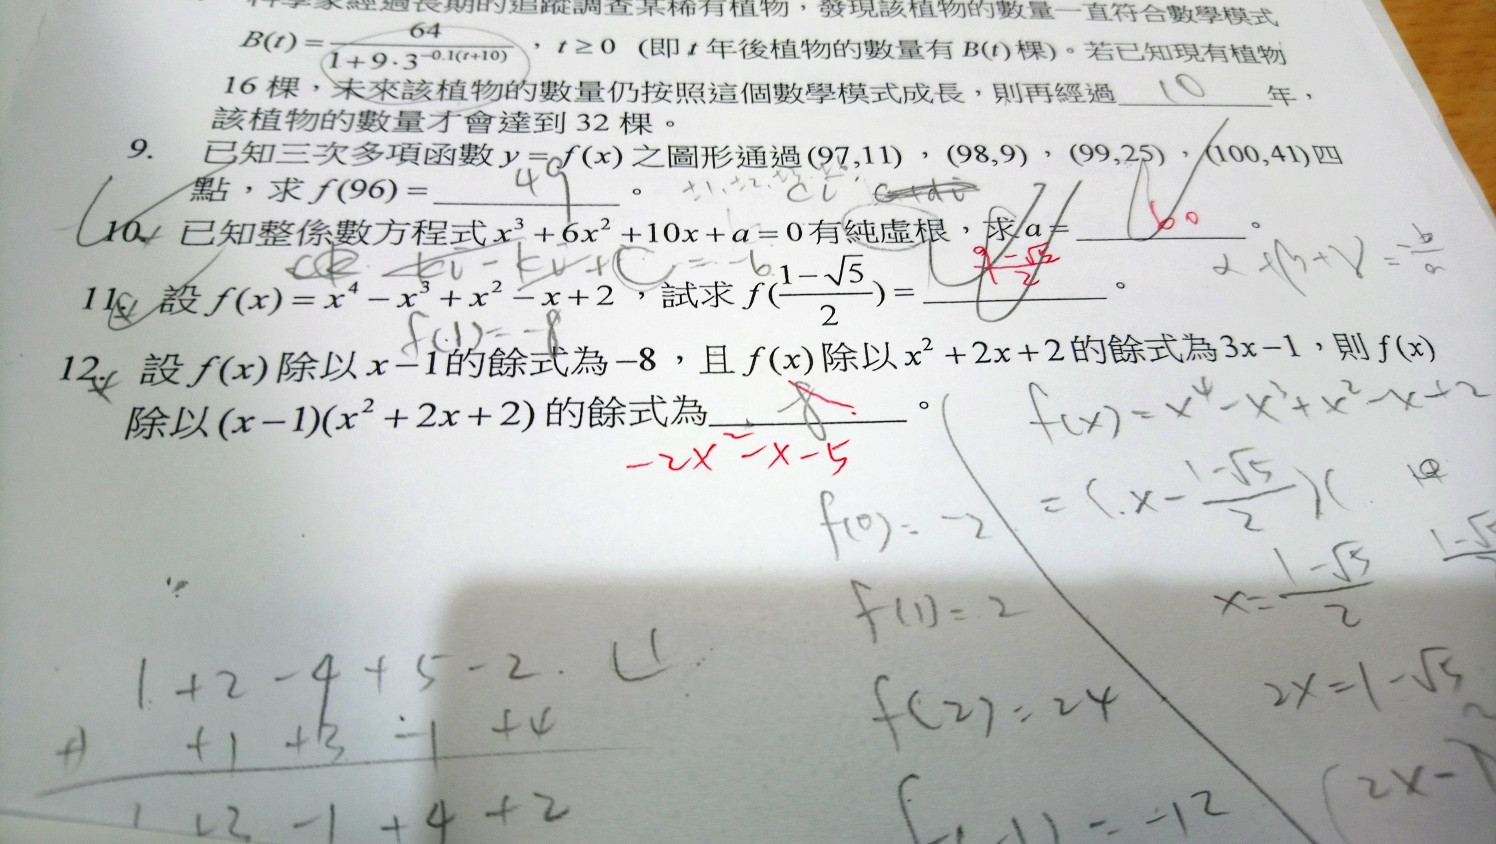 科學家經過長期的追蹤調查某稀有植物，發現該植物的數量一直符合數學模式
B(t) = 64 / (1+9·3^(-0.1(t+10)))，t ≥ 0 (即 t 年後植物的數量有 B(t) 棵)。若已知現有植物
16 棵，未來該植物的數量仍按照這個數學模式成長，則再經過 10 年，
該植物的數量才會達到 32 棵。
9. 已知三次多項函數 y = f(x) 之圖形通過 (97,11)，(98,9)，(99,25)，(100,41) 四
點，求 f(96) = 49 。
10. 已知整係數方程式 x³ + 6x² + 10x + a = 0 有純虛根，求 a = 60 。
11. 設 f(x) = x⁴ − x³ + x² − x + 2，試求 f((1−√5)/2) = 。
f(1) = -8
12. 設 f(x) 除以 x−1 的餘式為 −8，且 f(x) 除以 x² + 2x + 2 的餘式為 3x−1，則 f(x)
除以 (x−1)(x² + 2x + 2) 的餘式為 。
-2x²-x-5
f(x) = x⁴-x³+x²-x+2
= (x - (1-√5)/2)(
f(0) = -2
x = (1-√5)/2
f(1) = 2
1 +2 -4 +5 -2
2x = 1-√5
f(2) = 24
+1 +3 -1 +4
1 +3 -1 +4 +2
= -12
(2x-1